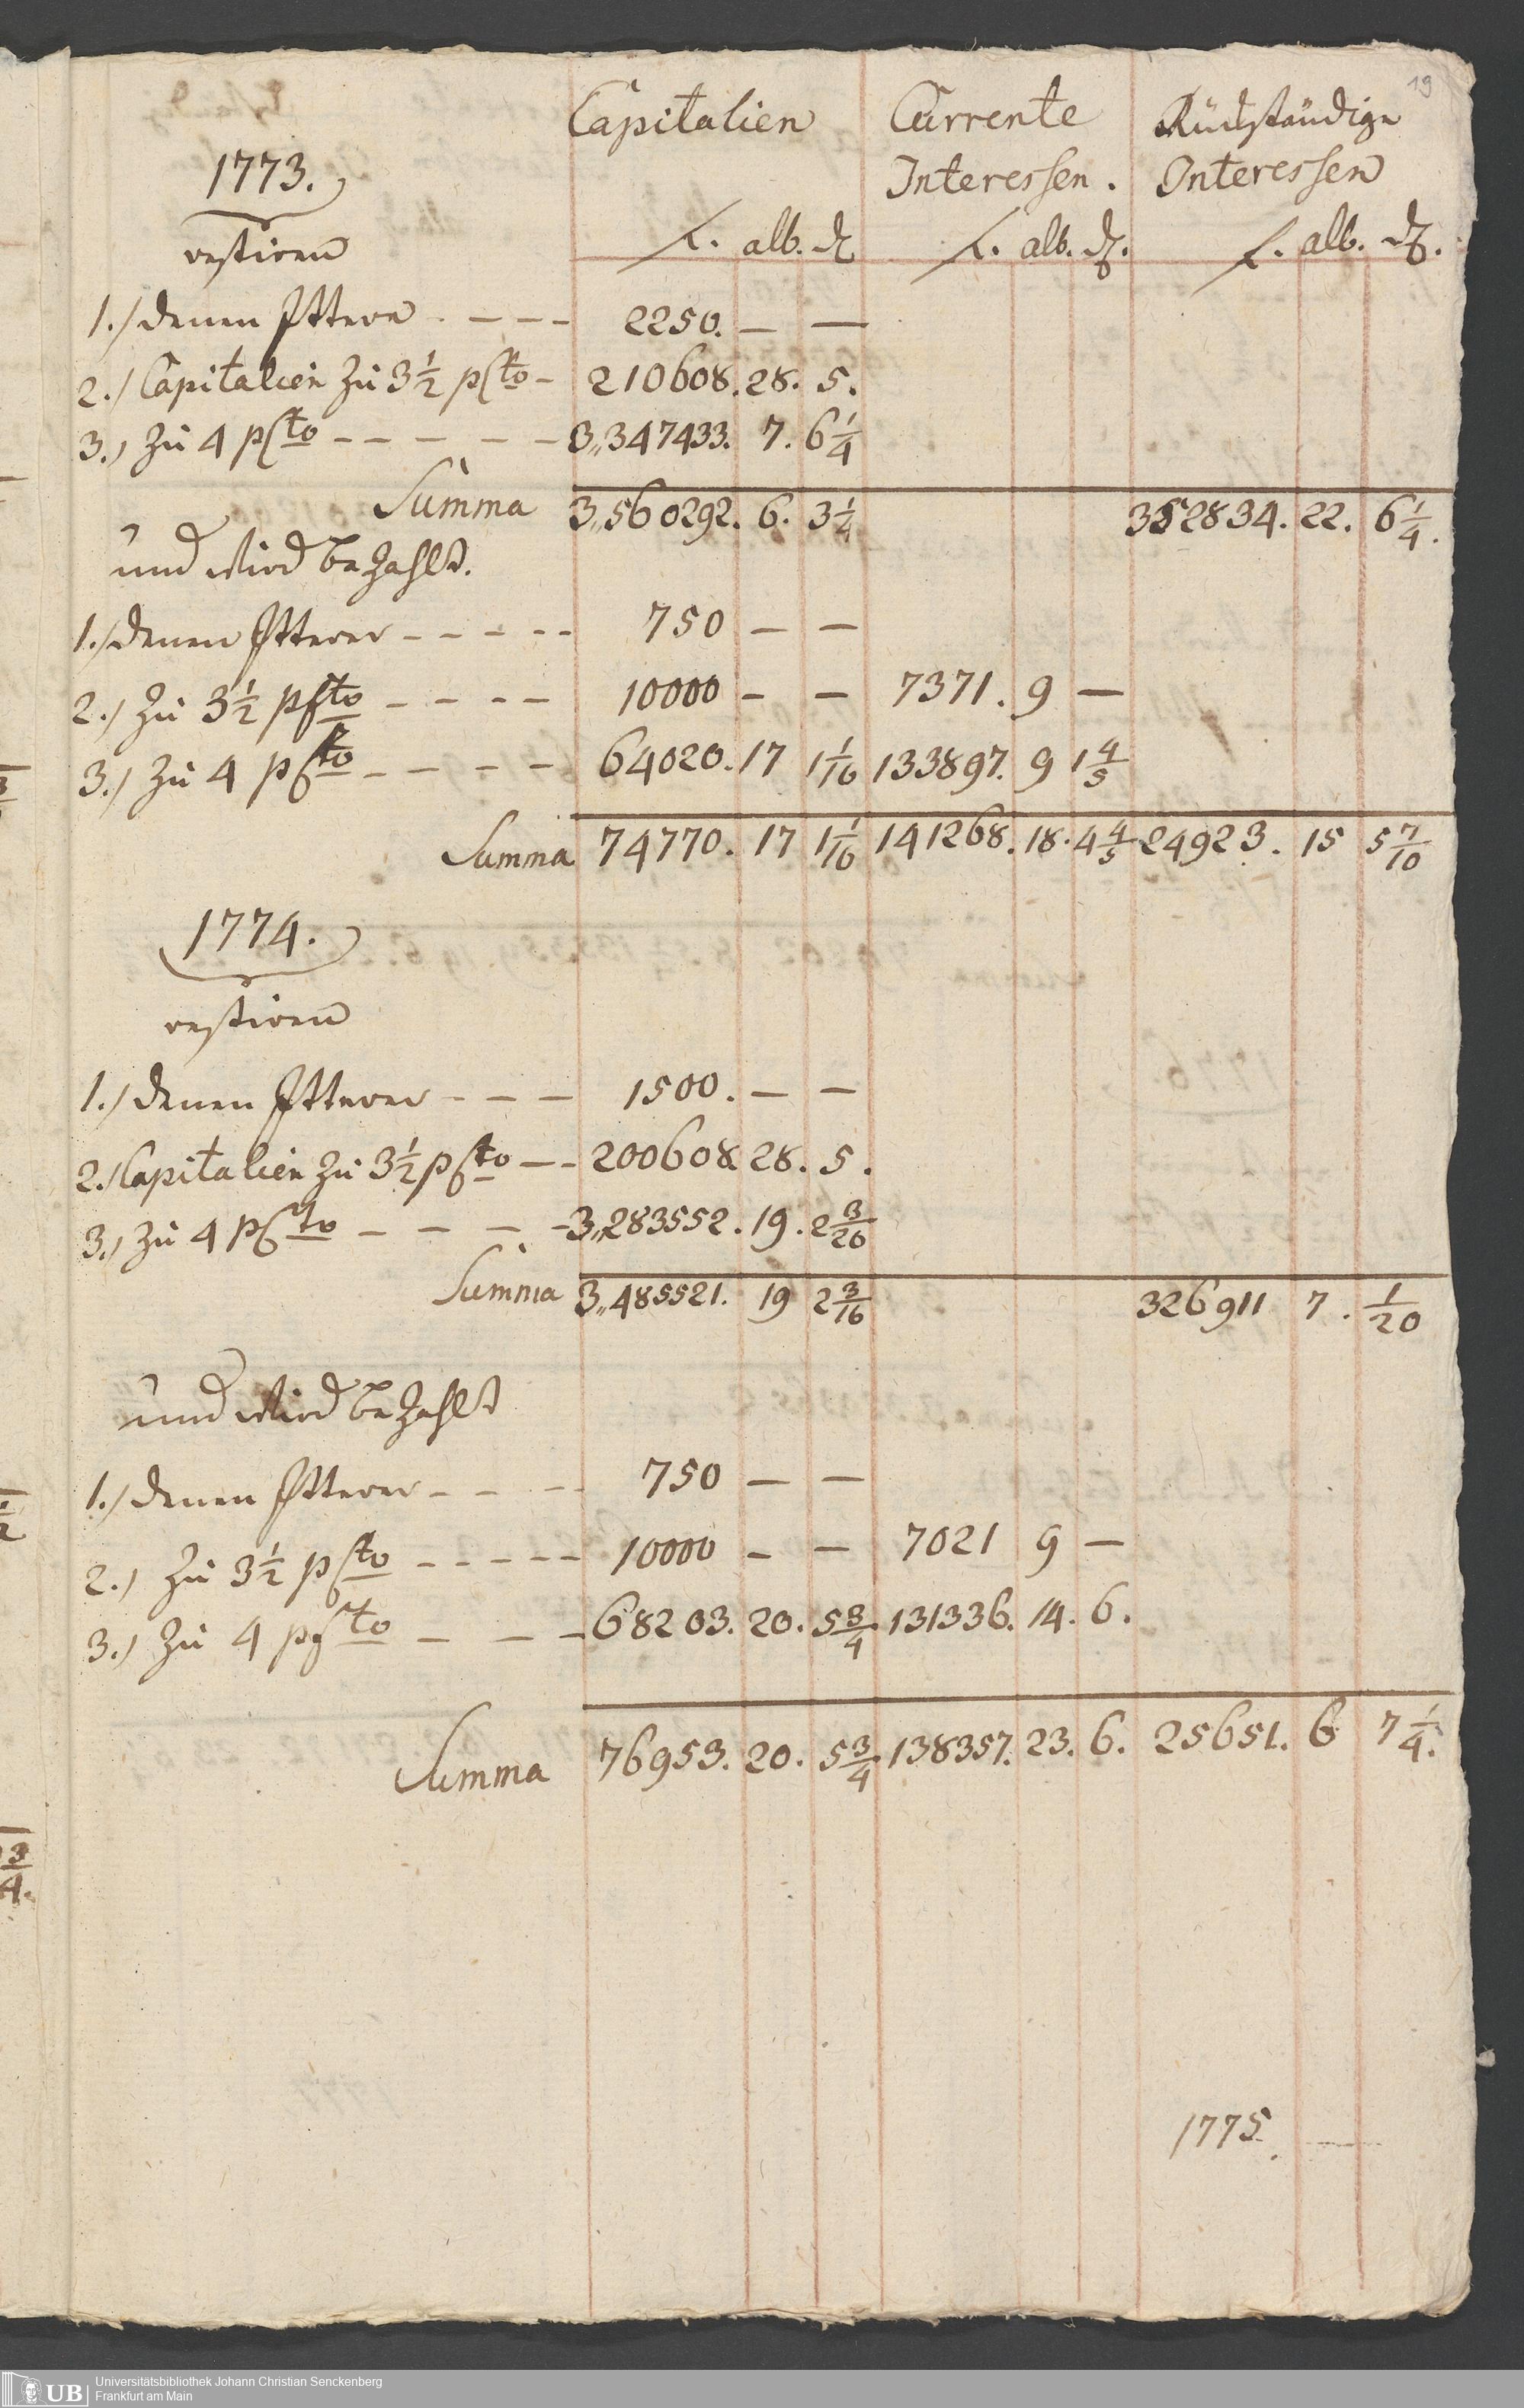 19
Capitalien Currente Rückständige
1773. Interessen. Interessen
restiren f. alb. d f. alb. d. f. alb. d.
1.) denen Itterer - - - - 2250. — —
2.) Capitalien zu 3 1/2 pCto - 210608. 28. 5.
3.) zu 4 pCto - - - - - 3,,347433. 7. 6 1/4
Summa 3,,560292. 6. 3 1/4 352834. 22. 6 1/4.
und wird bezahlt.
1.) denen Itterer - - - - - 750 — —
2.) zu 3 1/2 pCto - - - - - 10000 — — 7371. 9 —
3.) zu 4 pCto - - - - - 64020. 17 1 1/16 133897. 9 1 4/5
Summa 74770. 17 1 1/16 141268. 18. 4 4/5 24923. 15 5 7/10
1774.
restiren
1.) denen Itterer - - - 1500. — —
2.) Capitalien zu 3 1/2 pCto - - 200608 28. 5.
3.) zu 4 pCto - - - - 3,,283552. 19. 2 3/20
Summa 3,,485521. 19 2 3/16 326911 7. 1/20
und wird bezahlt
1.) denen Itterer - - - - 750 — —
2.) zu 3 1/2 pCto - - - - - 10000 — — 7021 9 —
3.) zu 4 pCto - - - 68203. 20. 5 3/4 131336. 14. 6.
Summa 76953. 20. 5 3/4 138357. 23. 6. 25651. 6 7 1/4.
1775.
UB Universitätsbibliothek Johann Christian Senckenberg
Frankfurt am Main